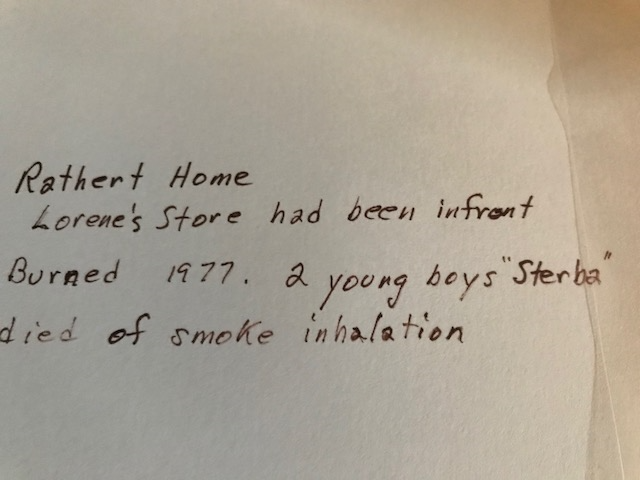 Rathert Home
Lorene's Store had been infront
Burned 1977. 2 young boys "Sterba"
died of smoke inhalation